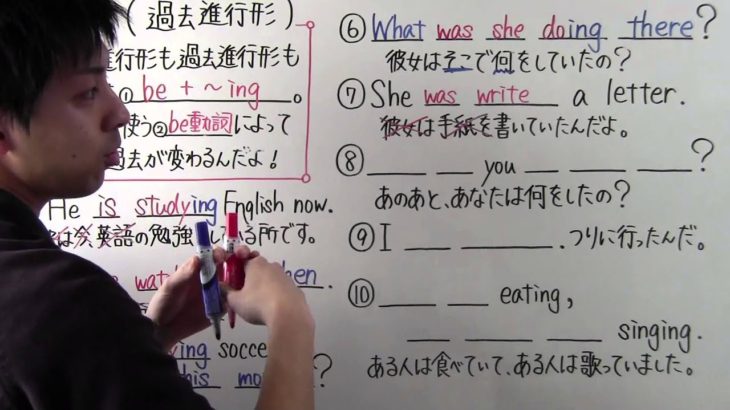 (過去進行形)
行形も過去進行形も
① be + ～ing 。
使う②be動詞によって
過去が変わるんだよ!
He is studying English now.
は今英語の勉強 いる所です。
hen.
ying socce
this mo ?
⑥ What was she doing there?
彼女はそこで何をしていたの?
⑦ She was write a letter.
彼女は手紙を書いていたんだよ。
⑧ you ?
あのあと、あなたは何をしたの?
⑨ I . つりに行ったんだ。
⑩ eating,
singing.
ある人は食べていて、ある人は歌っていました。